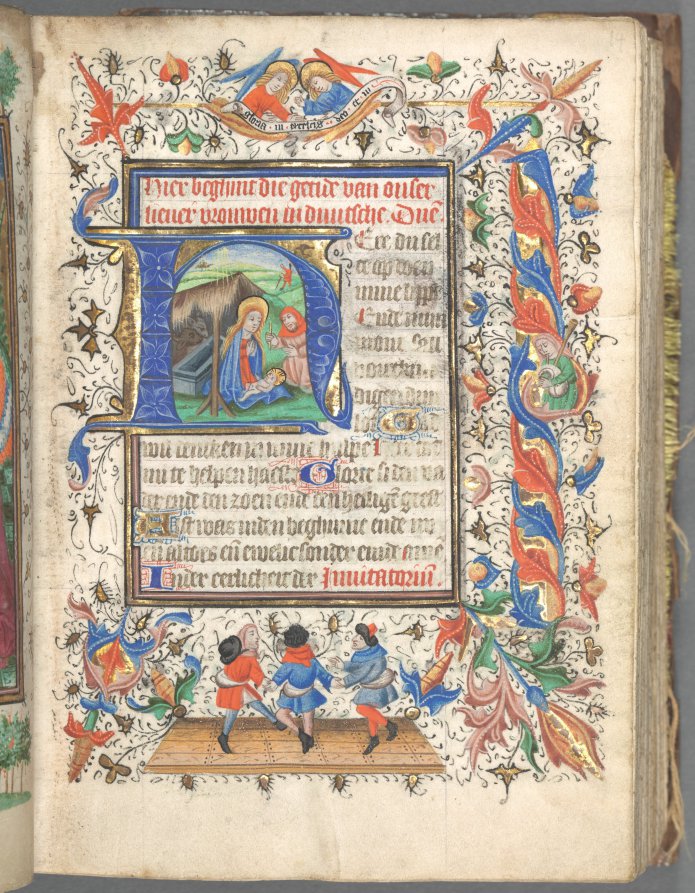 gloria in excelcis deo et in
Hier beghint die getide van onser
lieuer vrouwen in duutsche. Dne
H Ere du sel
te op doen
mine lipp
Ende min
mont sal
dijn
God
wil in mine hulpe
mi te helpen haest Glorie si den va
der ende den zoen ende den heilighe geest
Alst was inden beghinne ende nu
en altoes en ewelic sonder einde ame
In der eerlicheit der Inuitatoriu.